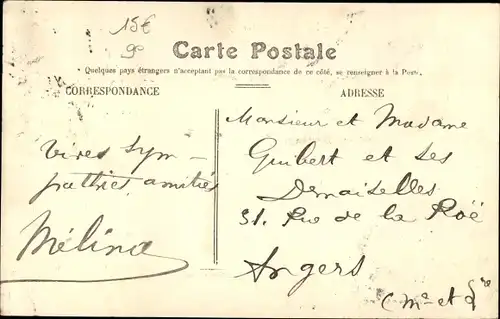 15€
9e
Carte Postale
Quelques pays étrangers n'acceptant pas la correspondance de ce côté, se renseigner à la Poste.
CORRESPONDANCE
ADRESSE
Vives sym-
pathies amitiés
Mélina
Monsieur et Madame
Guibert et ses
Demoiselles
31. Rue de la Roë
Angers
(Me et Lre